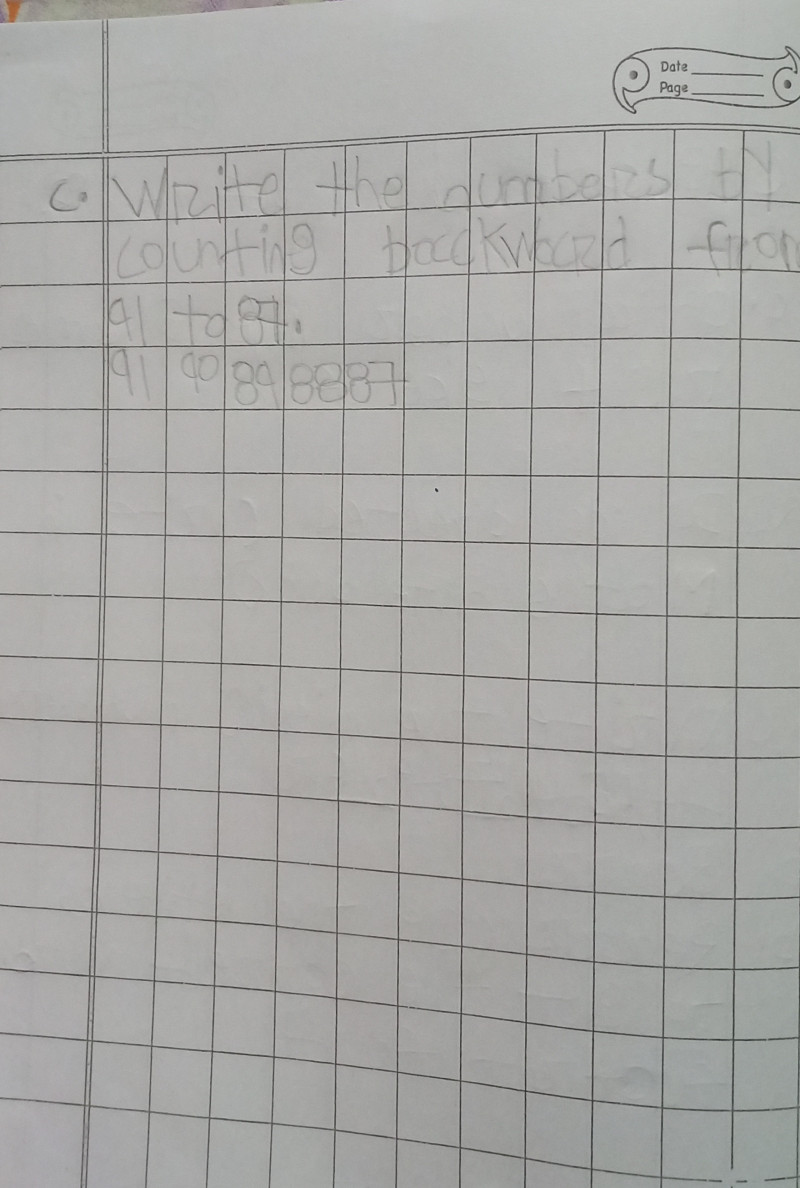 Date
Page
C. Write the numbers by
counting backward from
91 to 87.
91 90 89 88 87